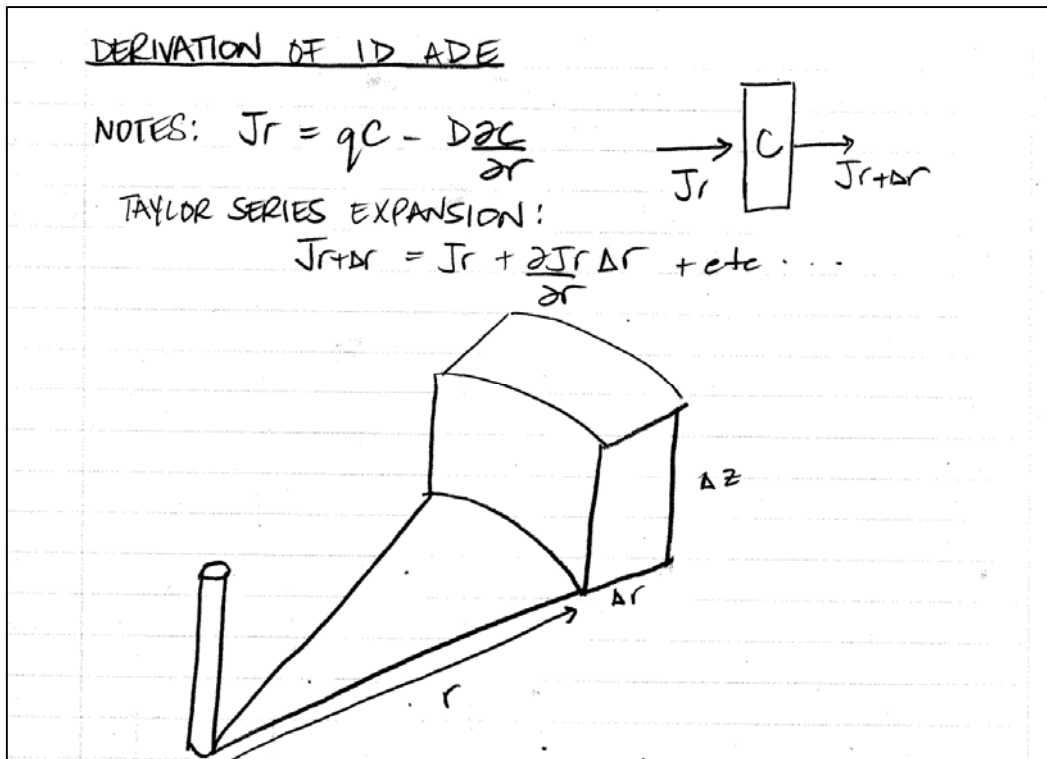 DERIVATION OF 1D ADE
NOTES: Jr = qC - D∂C/∂r
Jr C Jr+Δr
TAYLOR SERIES EXPANSION:
Jr+Δr = Jr + ∂Jr/∂r Δr + etc ....
Δz
Δr
r